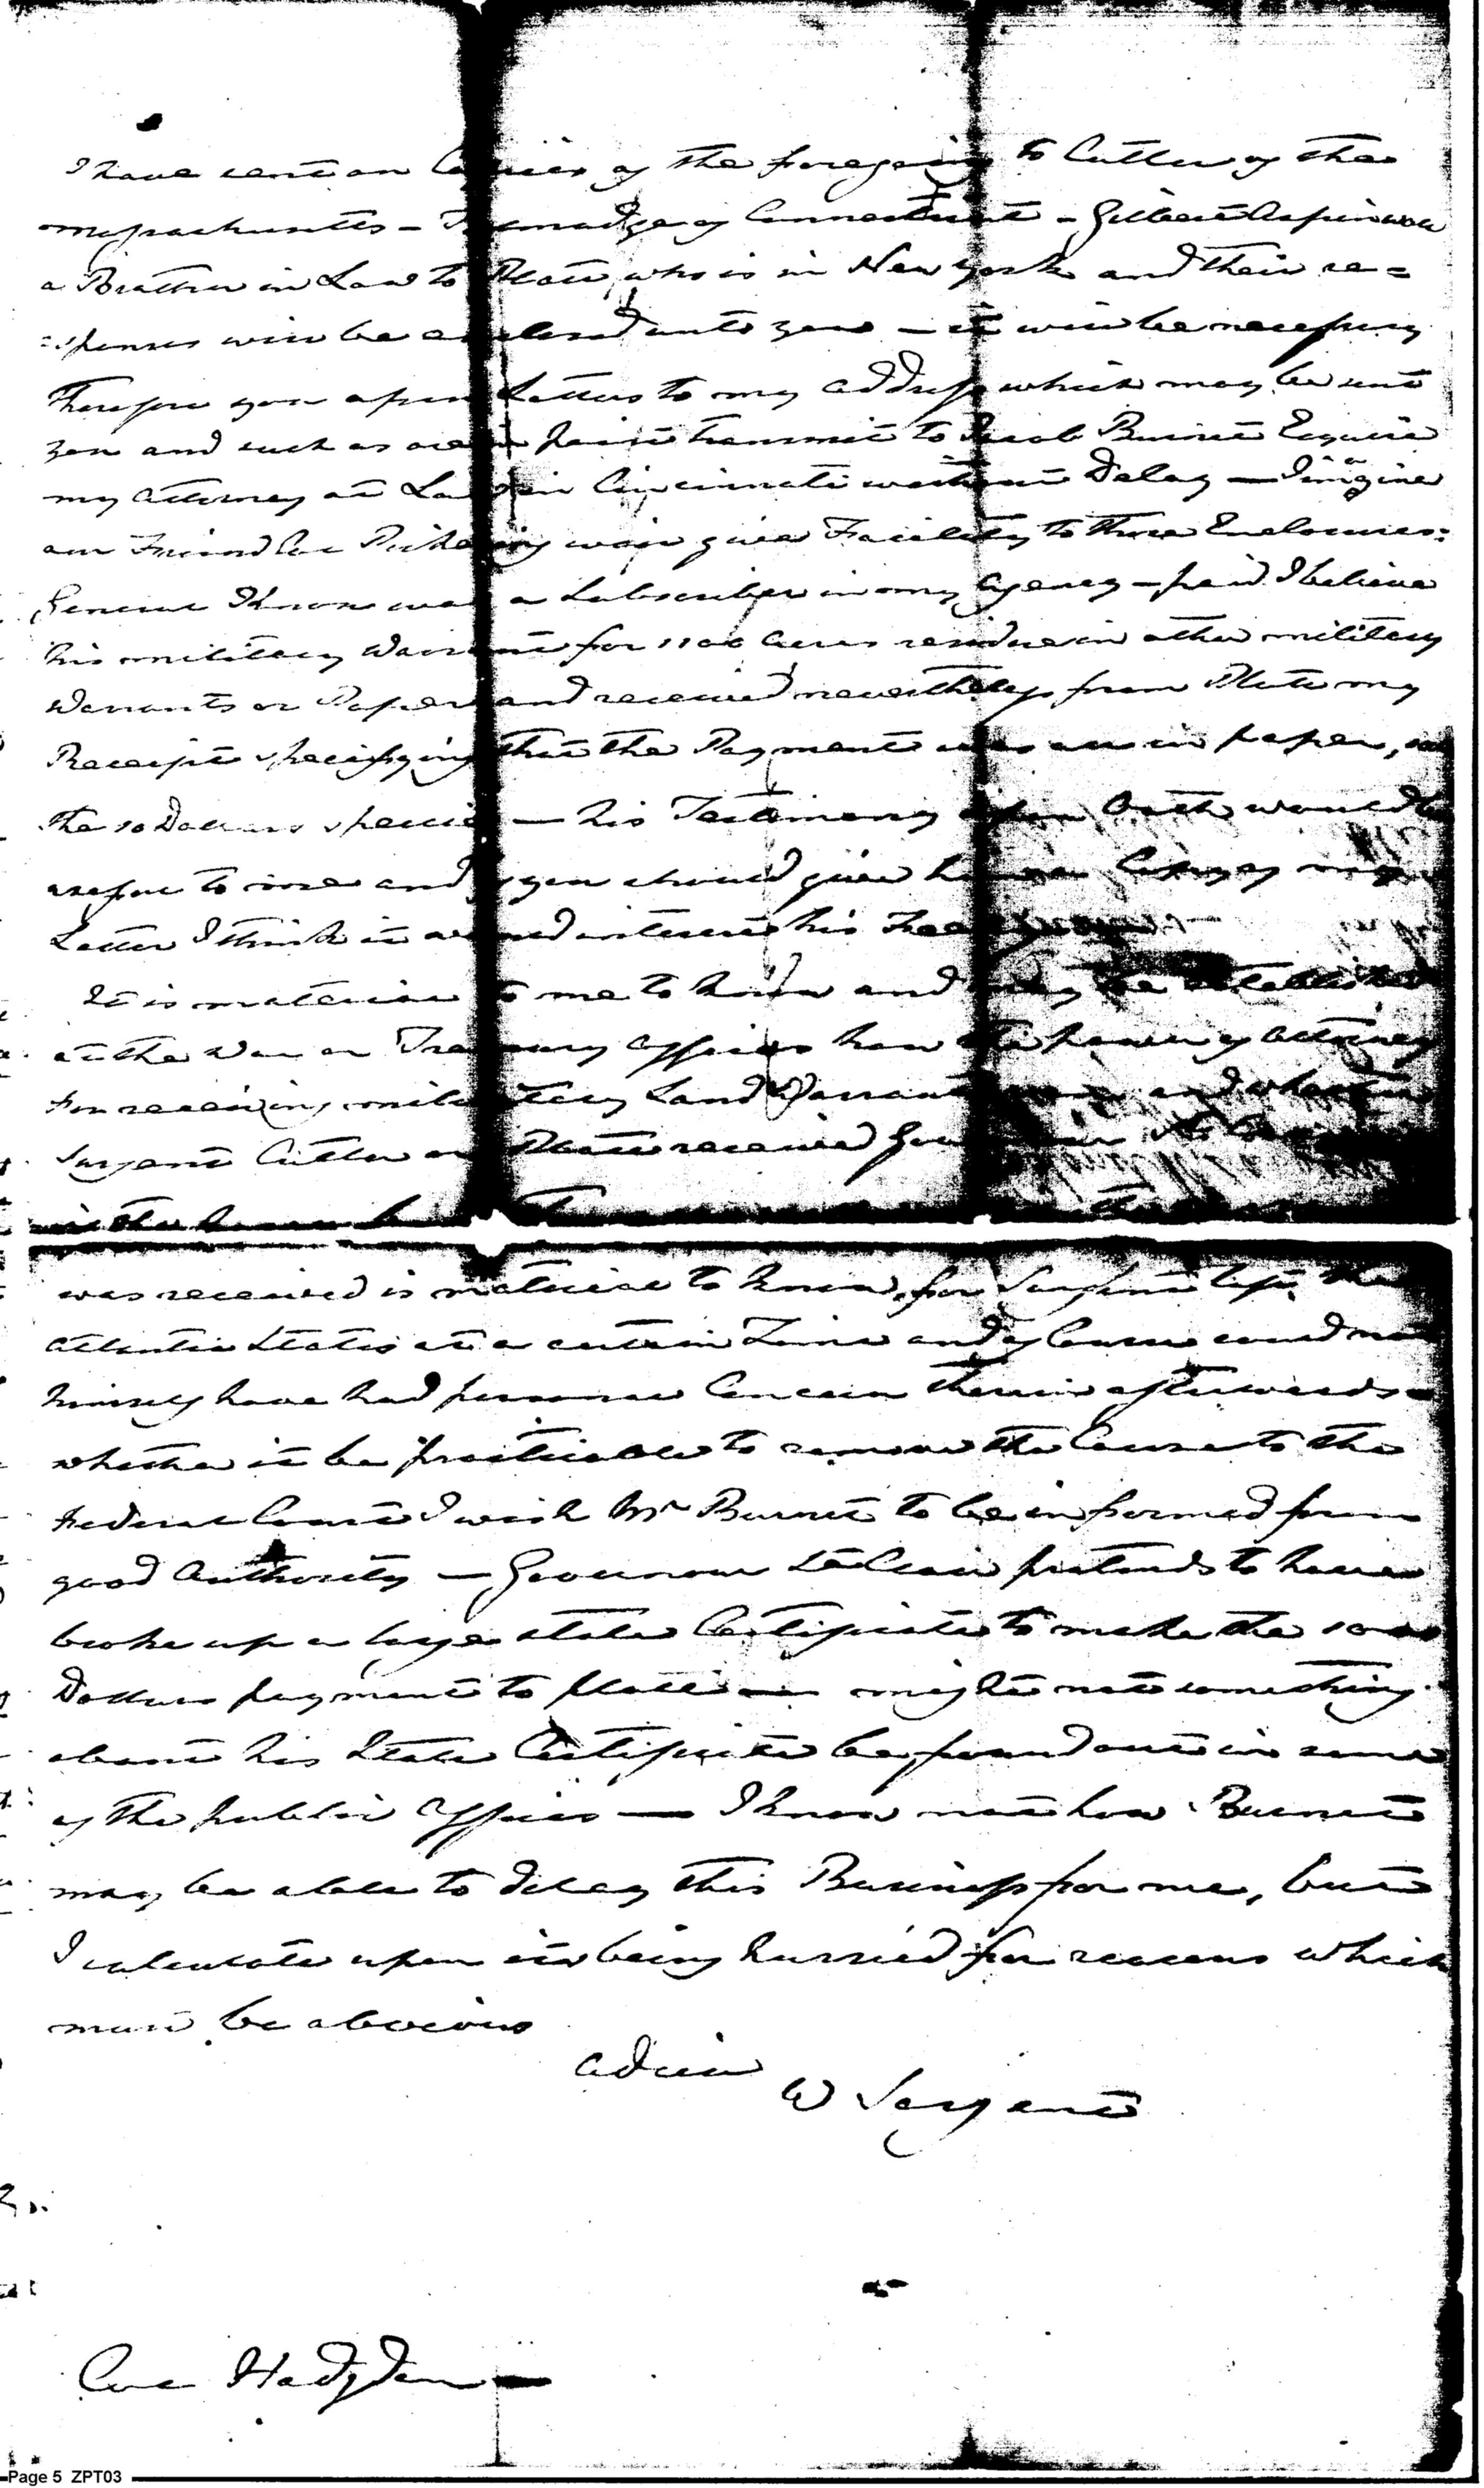 I have sent on Copies of the foregoing to Cutler of the
Massachusetts - Talmadge of Connecticut - Gilbert Aspinwall
a Brother in Law to Platt, who is in New York and their re=
=sponses will be enclosed unto you — it will be necessary
Therefore you open Letters to my address which may be sent
you and such as are in point transmit to Jacob Burnet Esquire
my Attorney at Law in Cincinnati without Delay — I imagine
our Friend Col Pickering will give Facility to these Enclosures:
General Knox was a Subscriber in my Agency - paid I believe
his military Warrant for 1100 Acres residue in other military
Warrants or Paper and received nevertheless from Platt my
Receipt specifying that the Payment was all in paper,
the 10 Dollars specie — his Testimony upon Oath would be
useful to me and if you should give him a Copy of my
Letter I think it would interest his
It is material to me to know and may be established
at the War or Treasury offices how the power of Attorney
for receiving military Land Warrants and whether
Sargent Cutler or Platt received
in the
was received is material to know, for Sargent left the
Atlantic States at a certain Time and of Course could not
himself have had personal Concern therein afterwards
whether it be practicable to remove the Cause to the
Federal Court I wish Mr Burnet to be informed from
good Authority — Governour St Clair pretends to have
broke up a large state Certificate to make the 1000
Dollars payment to Platt — might not something
about his State Certificate be found out in some
of the public offices — I know not how Burnet
may be able to delay this Business for me, but
I calculate upon its being hurried for reasons which
must be obvious
Adieu
W Sargent
Col Hodgdon —
Page 5 ZPT03